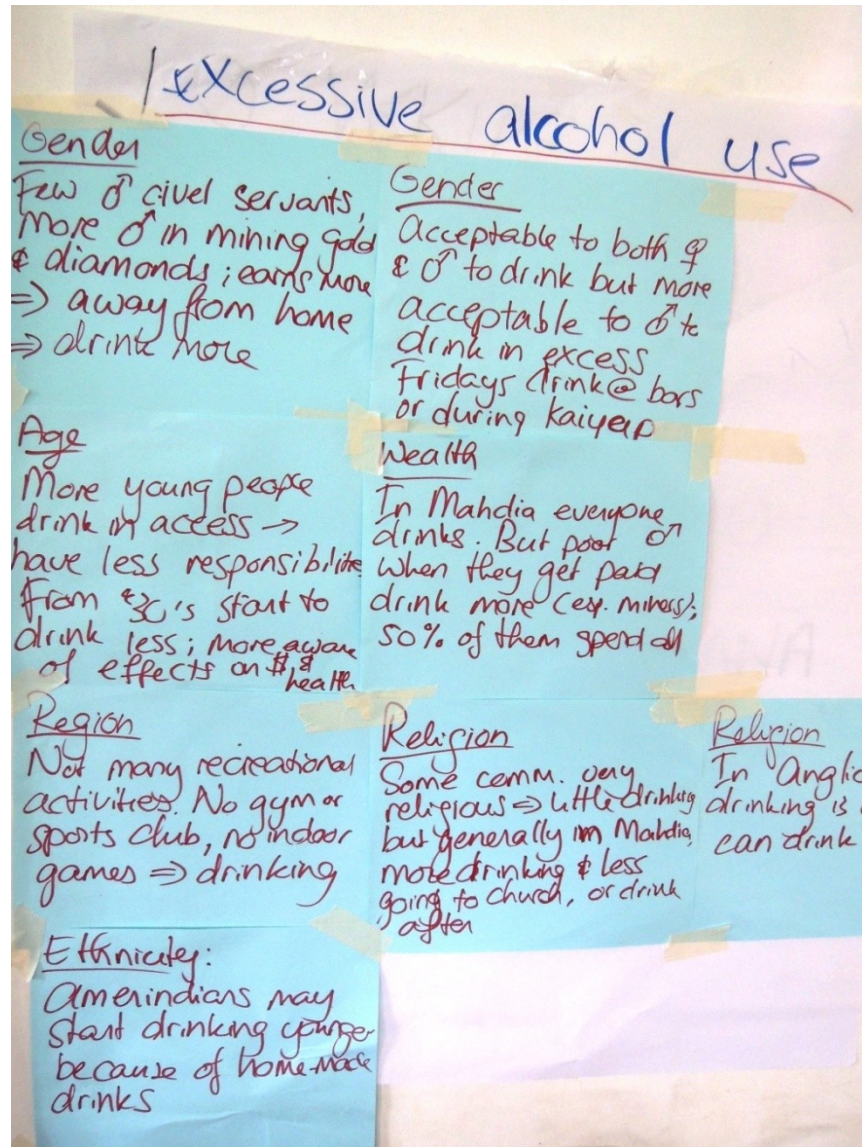 excessive alcohol use
Gender
Few ♂ civel servants,
more ♂ in mining gold
& diamonds; earns more
⇒ away from home
⇒ drink more
Gender
Acceptable to both ♀
& ♂ to drink but more
acceptable to ♂ to
drink in excess
Fridays drink @ bars
or during kaiyeap
Age
More young people
drink in access →
have less responsibilitie
From ±30's start to
drink less; more aware
of effects on $ &
health
Wealth
In Mahdia everyone
drinks. But poor ♂
when they get paid
drink more (esp. miners);
50% of them spend all
Region
Not many recreational
activities. No gym or
sports club, no indoor
games ⇒ drinking
Religion
Some comm. very
religious ⇒ little drinking
but generally in Mahdia,
more drinking & less
going to church, or drink
after
Religion
In Anglic
drinking is
can drink
Ethnicity:
Amerindians may
start drinking younger
because of home-made
drinks